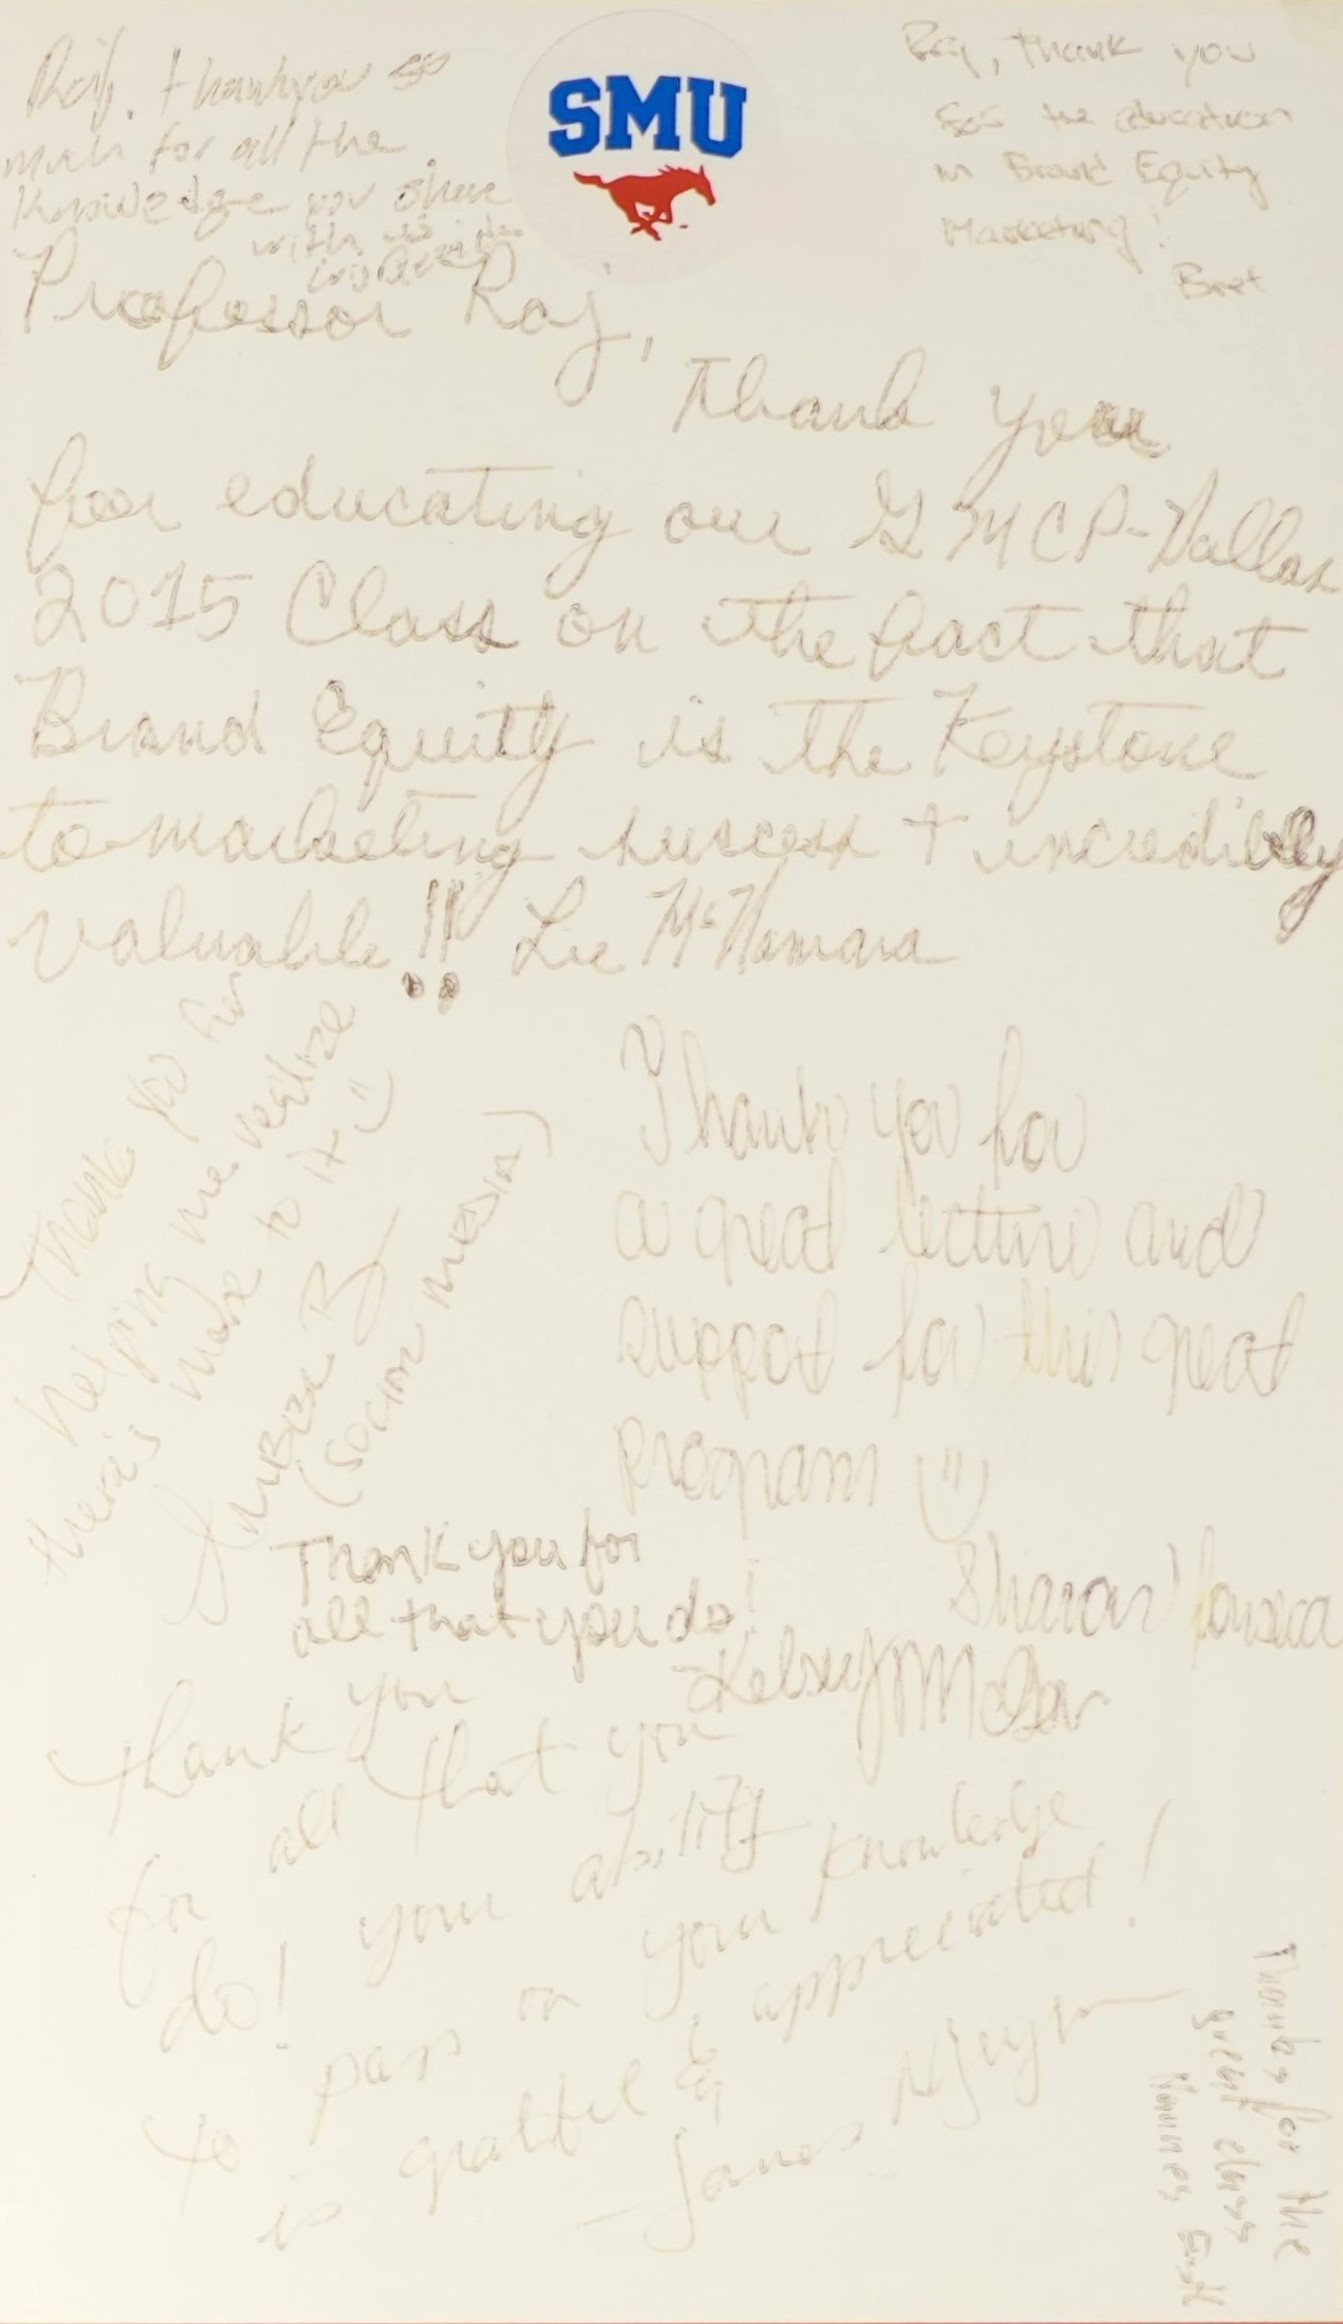 Raj, thankyou so
much for all the
knowledge you share
with us
SMU
Raj, Thank you
for the education
in Brand Equity
Marketing!
Bret
Professor Raj,
Thank you
for educating our GMCP-Dallas
2015 Class on the fact that
Brand Equity is the Keystone
to marketing success + incredibly
valuable!! Lee McNamara
Thank you for
helping me realize
there's more to it
(SOCIAL MEDIA)
Thank you for
a great lecture and
support for this great
program
Sharon Fonseca
Thank you for
all that you do!
-Kelsey
Thank you
for all that you
do! your ability
to pass on your knowledge
is grateful & appreciated!
- James Nguyen
Thanks for the
great class